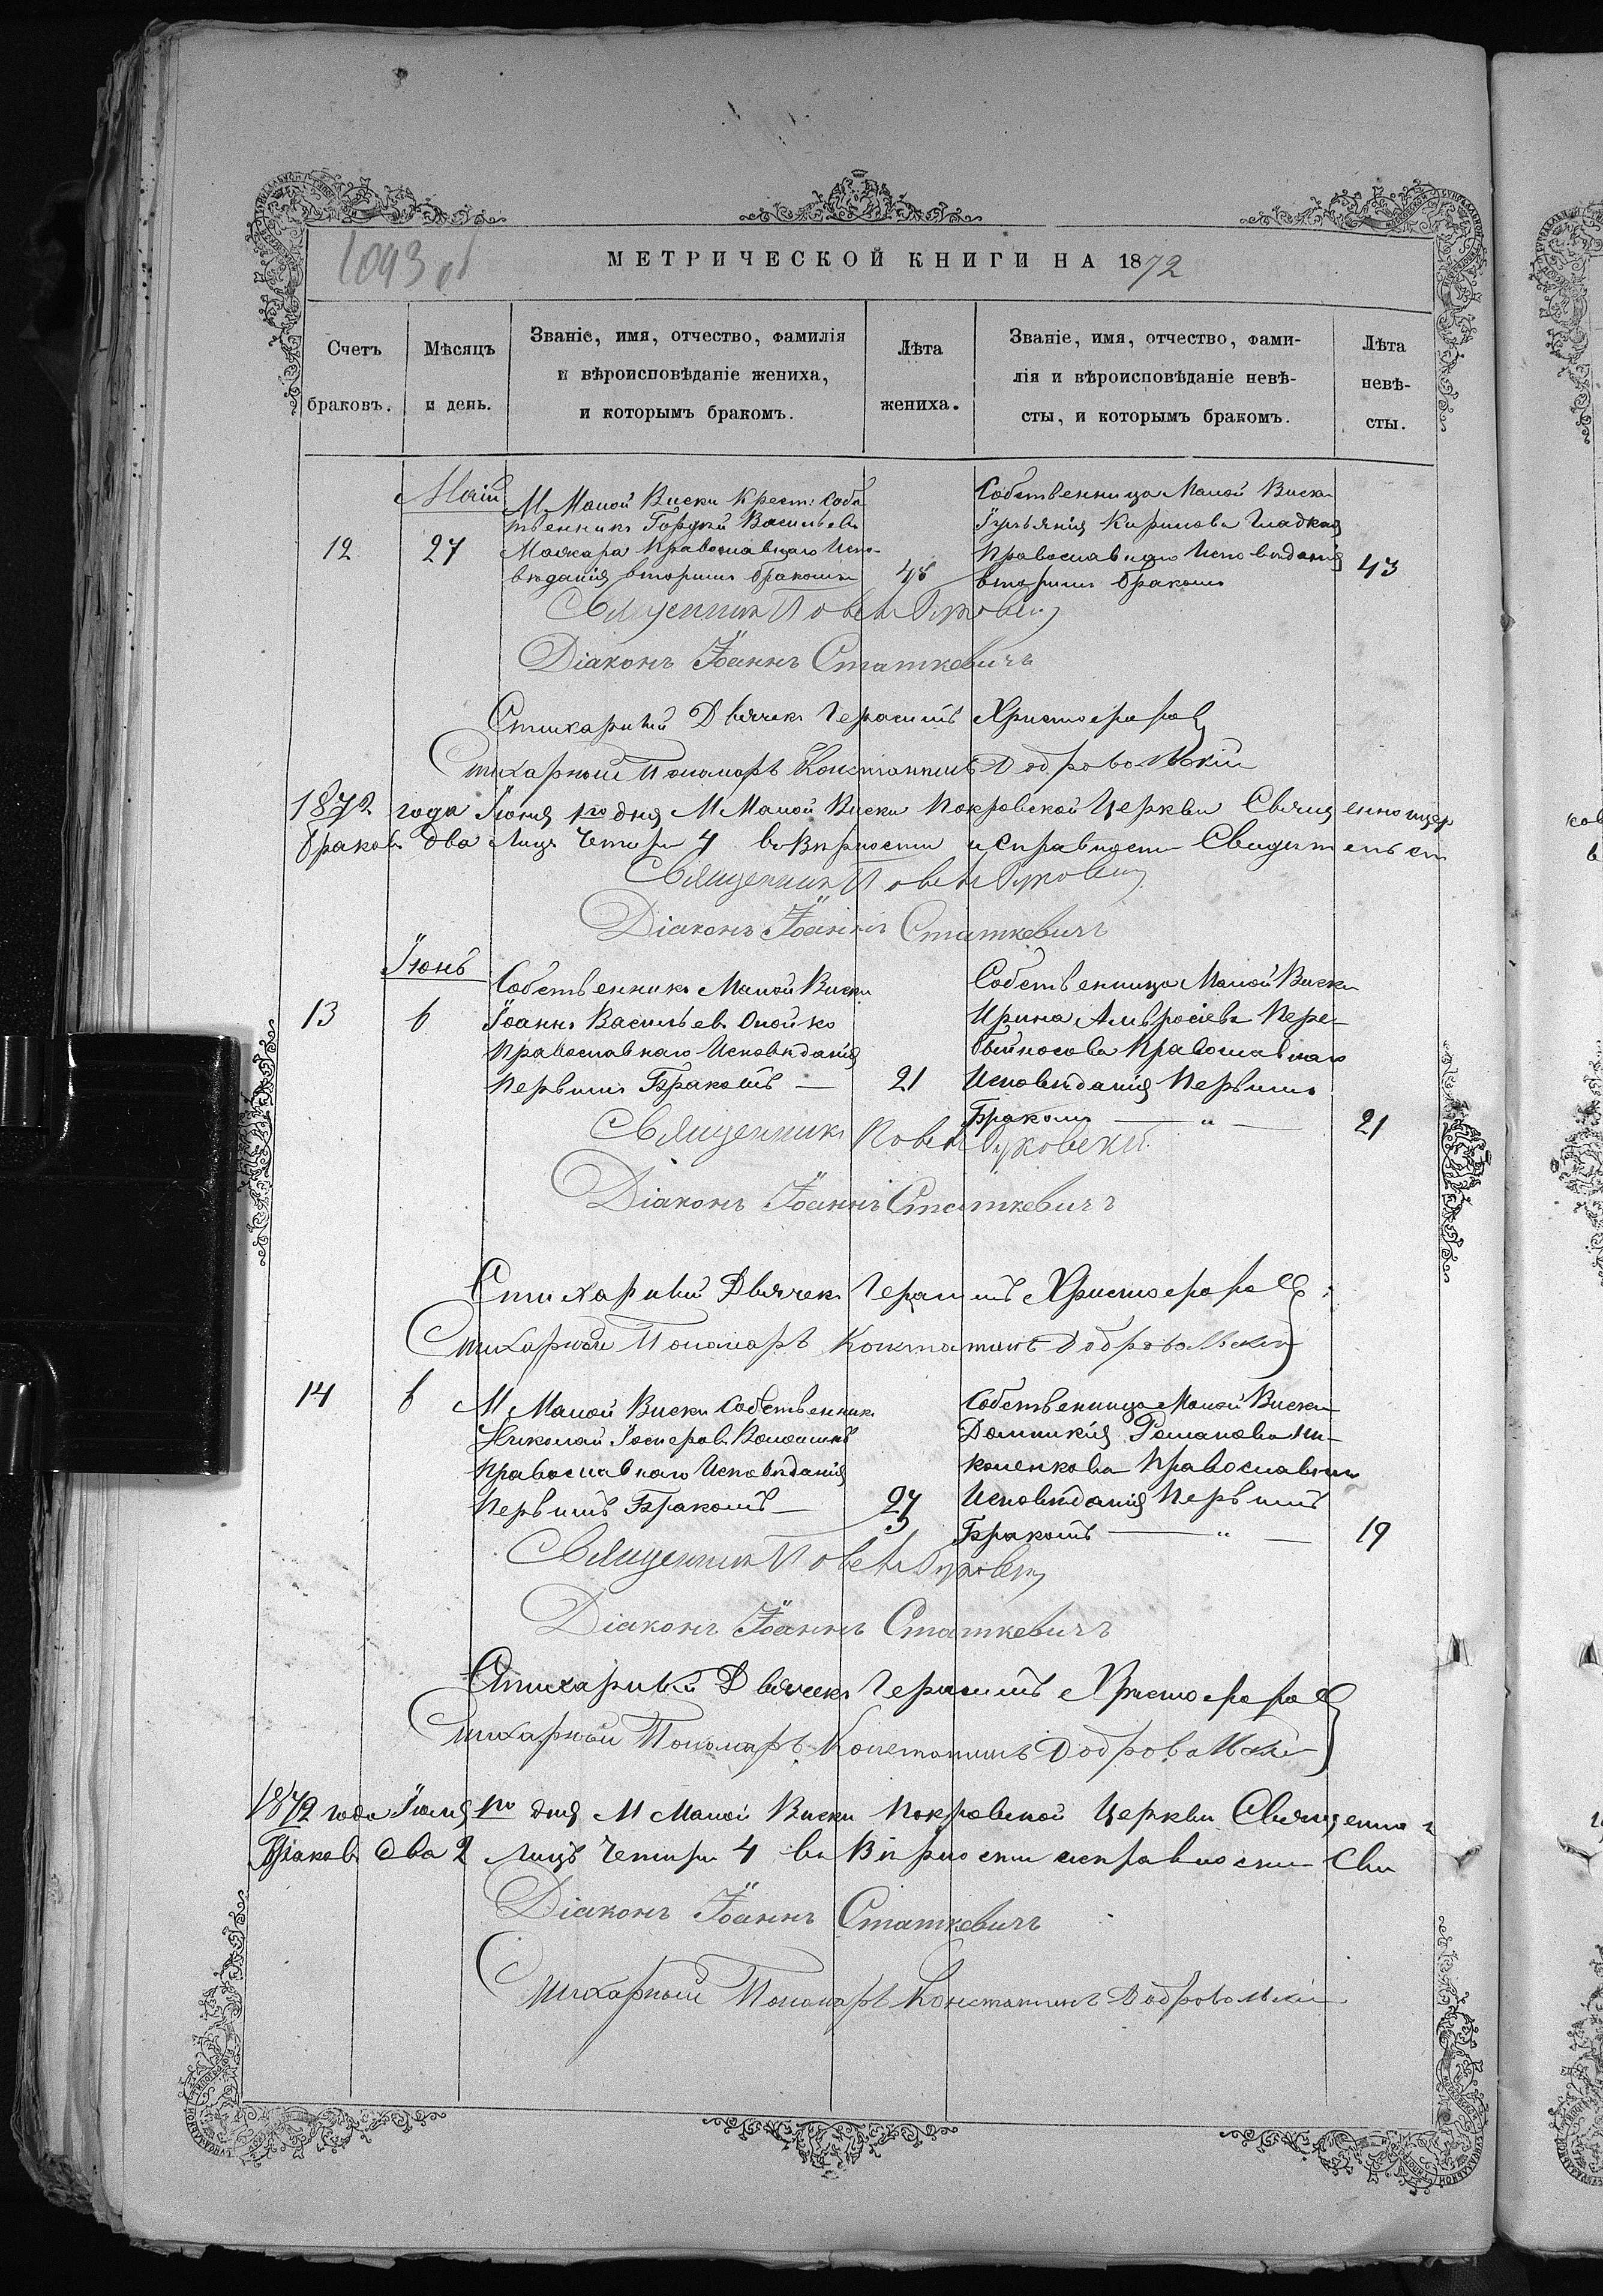 1093 об
МЕТРИЧЕСКОЙ КНИГИ НА 1872
Счетъ браковъ.
Мѣсяцъ и день.
Званіе, имя, отчество, фамилія
и вѣроисповѣданіе жениха,
и которымъ бракомъ.
Лѣта жениха.
Званіе, имя, отчество, фами-
лія и вѣроисповѣданіе невѣ-
сты, и которымъ бракомъ.
Лѣта невѣ-
сты.
Маій
12
27
М. Малой Виски Крест: Собс
твенникъ Гордѣй Васильевъ
Мажара Православнаго Испо-
вѣданія вторымъ бракомъ
48
Собственница Малой Виски
Гульянія Кирилова Гладкая
Православнаго Исповѣданія
вторымъ бракомъ
43
Священник Павелъ
Діаконъ Іоаннъ Статкевичъ
Стихарный Дьячекъ Герасимъ Христофоровъ
Стихарный Пономарь Константинъ Добровольскій
1872 года Іюня 1го дня М Малой Виски Покровской Церкви
браковъ два лицъ Четыри 4 въ Вѣрности исправности
Священник Павелъ
Діаконъ Іоаннъ Статкевичъ
Іюнь
13
6
Собственникъ Малой Виски
Іоаннъ Васильевъ Олойко
Православнаго Исповѣданія
Первымъ Бракомъ —
21
Собственница Малой Виски
Ирина Амвросіева Пере-
бийносова Православнаго
Исповѣданія Первымъ
Бракомъ — " —
21
Священникъ Павелъ
Діаконъ Іоаннъ Статкевичъ
Стихарный Дьячекъ Герасимъ Христофоровъ
Стихарный Пономарь Константинъ Добровольскій
14
6
М Малой Виски Собственникъ
Николай Іосифовъ Волошинъ
Православнаго Исповѣданія
Первымъ Бракомъ —
Собственница Малой Виски
Домникія Романова Ни-
коленкова Православнаго
Исповѣданія Первымъ
Бракомъ — " —
19
Священник Павелъ
Діаконъ Іоаннъ Статкевичъ
Стихарный Дьячекъ Герасимъ Христофоровъ
Стихарный Пономарь Константинъ Добровольскій
1872 года Іюля 1го дня М Малой Виски Покровской Церкви
Браковъ два 2 лицъ Четыри 4 въ Вѣрности исправности Сви
Діаконъ Іоаннъ Статкевичъ
Стихарный Пономарь Константинъ Добровольскій